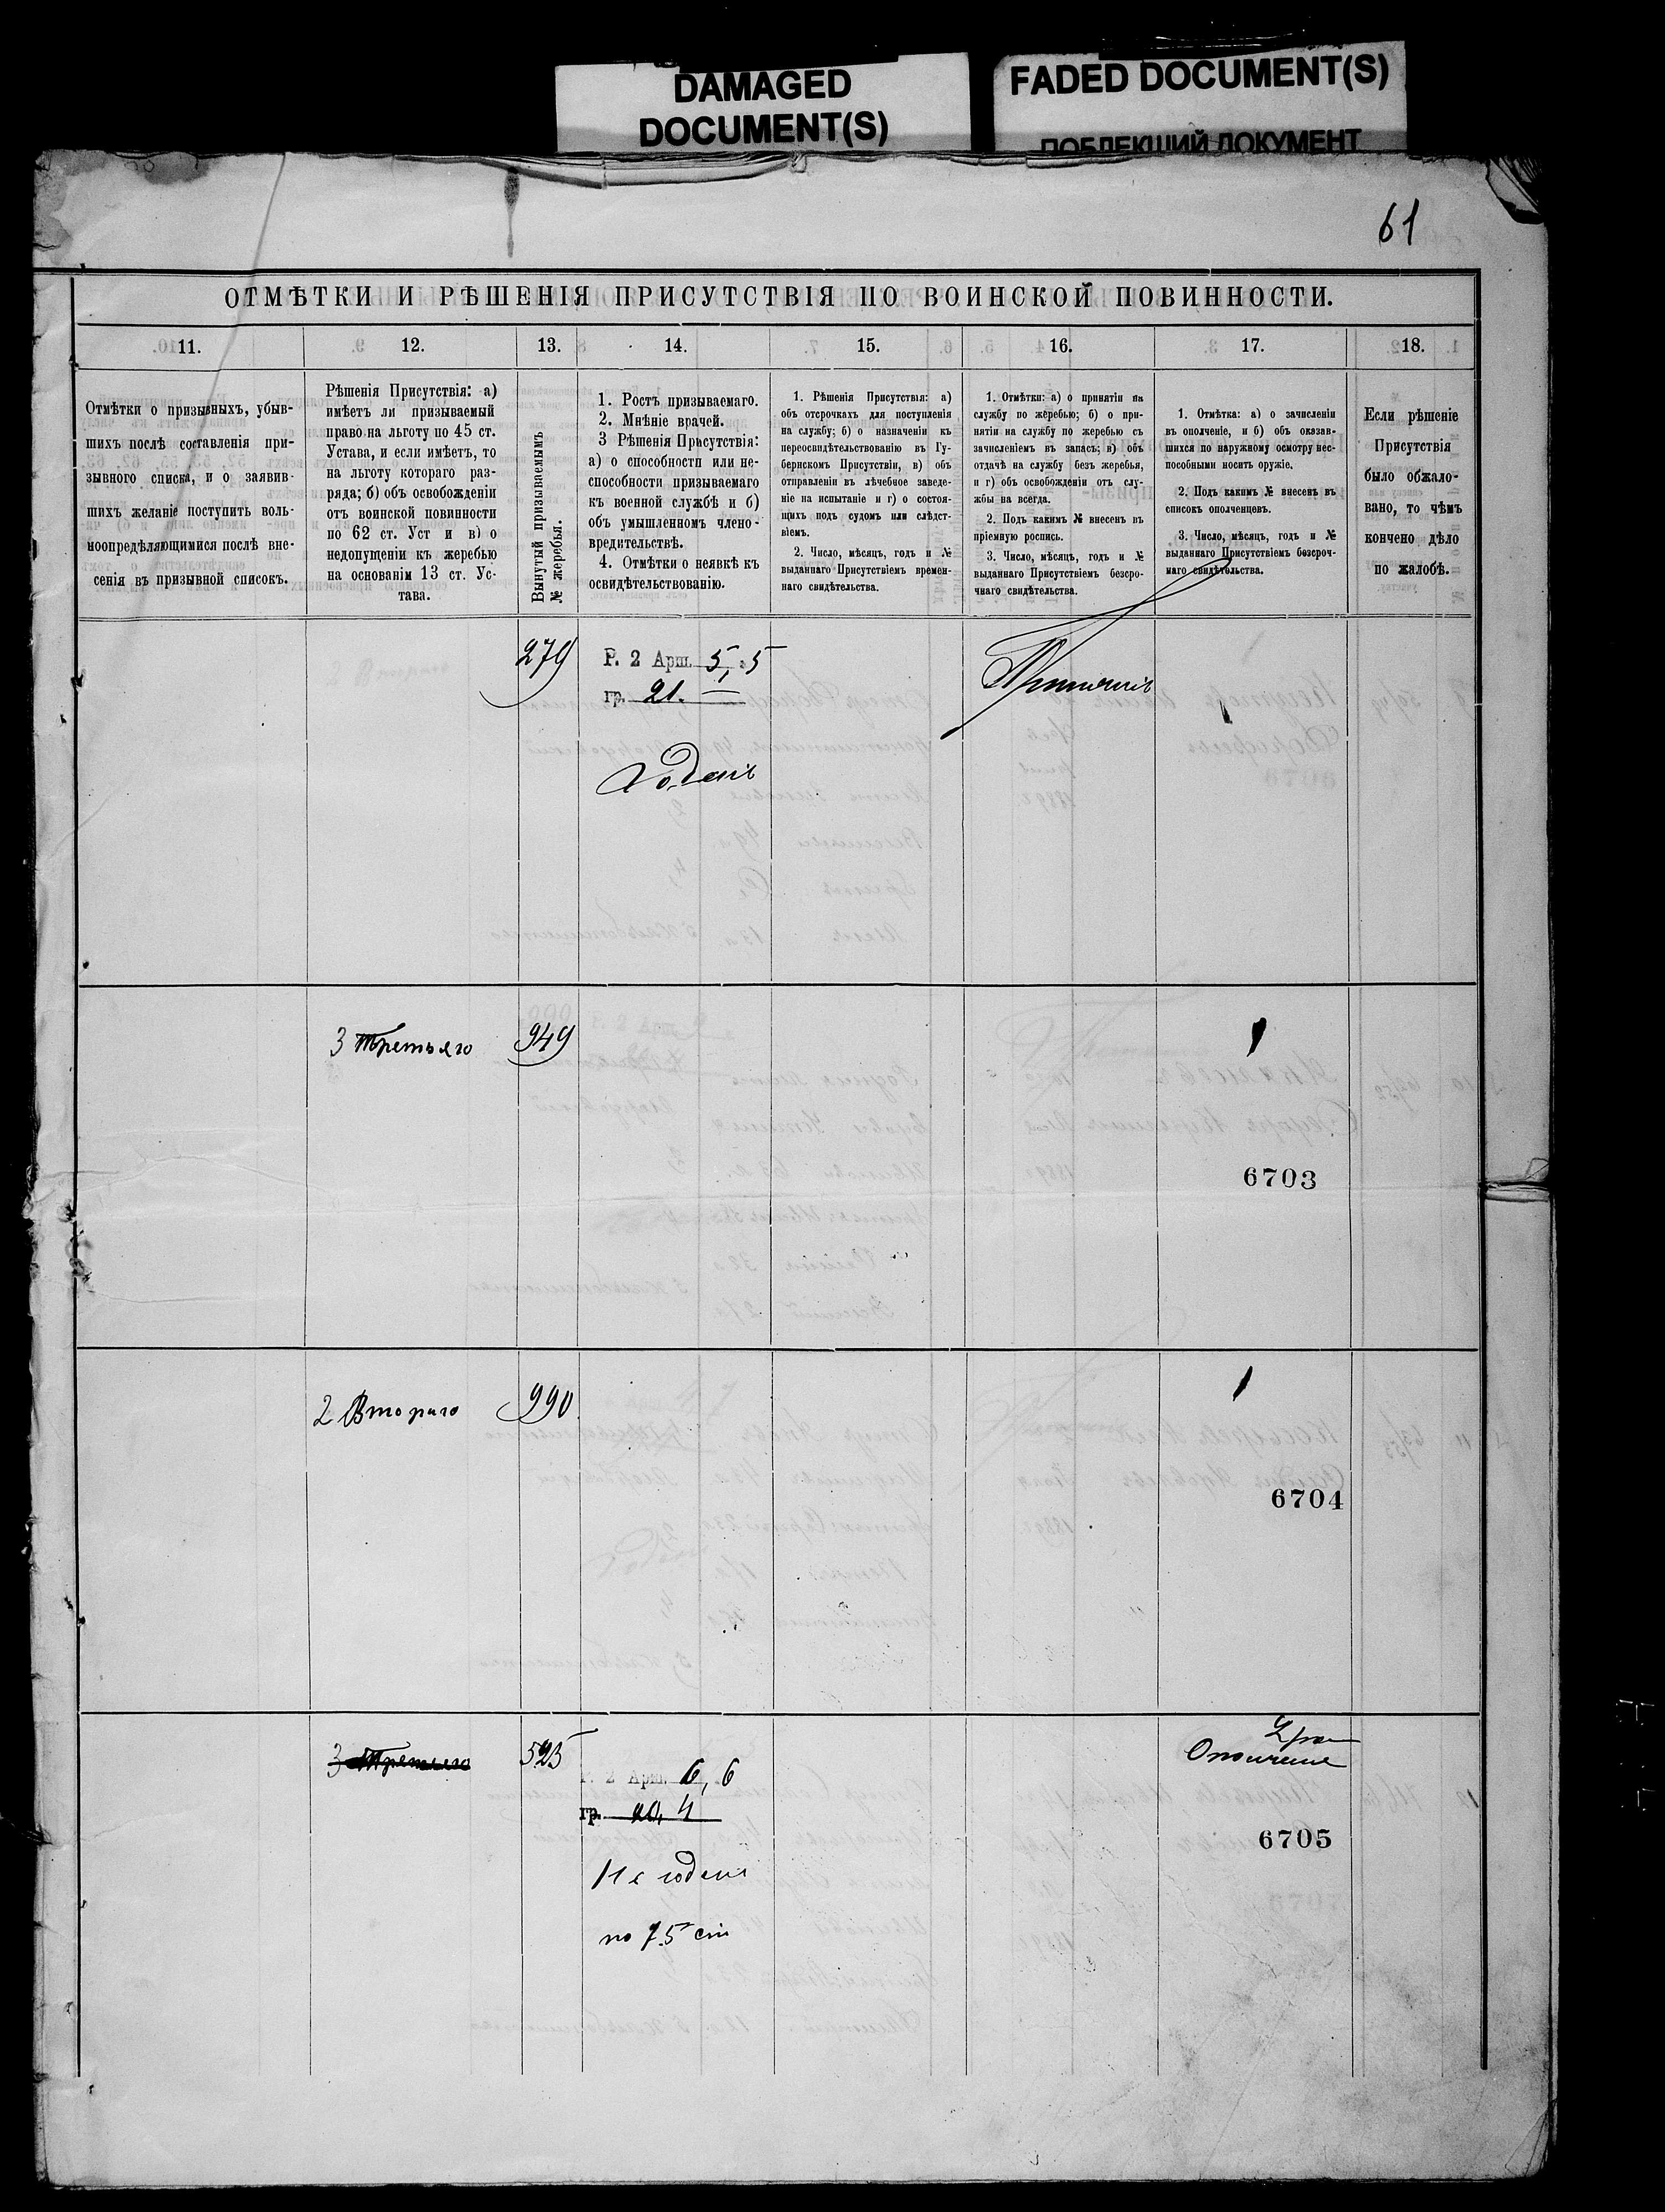 DAMAGED
DOCUMENT(S)
FADED DOCUMENT(S)
ПОБЛЕКШИЙ ДОКУМЕНТ
61
ОТМѢТКИ И РѢШЕНІЯ ПРИСУТСТВІЯ ПО ВОИНСКОЙ ПОВИННОСТИ.
11.
12.
13.
14.
15.
16.
17.
18.
Отмѣтки о призывныхъ, убыв-
шихъ послѣ составленія при-
зывного списка, и о заявив-
шихъ желаніе поступить воль-
ноопредѣляющимися послѣ вне-
сенія въ призывной списокъ.
Рѣшенія Присутствія: а)
имѣетъ ли призываемый
право на льготу по 45 ст.
Устава, и если имѣетъ, то
на льготу котораго раз-
ряда; б) объ освобожденіи
отъ воинской повинности
по 62 ст. Уст и в) о
недопущеніи къ жеребью
на основаніи 13 ст. Ус-
тава.
Вынутый призываемымъ
№ жеребья.
1. Ростъ призываемаго.
2. Мнѣніе врачей.
3 Рѣшенія Присутствія:
а) о способности или не-
способности призываемаго
къ военной службѣ и б)
объ умышленномъ члено-
вредительствѣ.
4. Отмѣтки о неявкѣ къ
освидѣтельствованію.
1. Рѣшенія Присутствія: а)
объ отсрочкахъ для поступленія
на службу; б) о назначеніи къ
переосвидѣтельствованію въ Гу-
бернскомъ Присутствіи, в) объ
отправленіи въ лѣчебное заведе-
ніе на испытаніе и г) о состоя-
щихъ подъ судомъ или слѣдст-
віемъ.
2. Число, мѣсяцъ, годъ и №
выданнаго Присутствіемъ времен-
наго свидѣтельства.
1. Отмѣтки: а) о принятіи на
службу по жеребью; б) о при-
нятіи на службу по жеребью съ
зачисленіемъ въ запасъ; в) объ
отдачѣ на службу безъ жеребья,
и г) объ освобожденіи отъ слу-
жбы на всегда.
2. Подъ какимъ № внесенъ въ
пріемную роспись.
3. Число, мѣсяцъ, годъ и №
выданнаго Присутствіемъ безсро-
чнаго свидѣтельства.
1. Отмѣтка: а) о зачисленіи
въ ополченіе, и б) объ оказав-
шихся по наружному осмотру нес-
пособными носить оружіе.
2. Подъ какимъ № внесенъ въ
списокъ ополченцевъ.
3. Число, мѣсяцъ, годъ и №
выданнаго Присутствіемъ безсроч-
наго свидѣтельства.
Если рѣшеніе
Присутствія
было обжало-
вано, то чѣмъ
кончено дѣло
по жалобѣ.
279
Р. 2 Арш. 5,5
гр. 21. —
Годенъ
Принятъ
3 Третьяго
949
6703
2 Втораго
990
6704
3 Третьяго
525
Р. 2 Арш. 6,6
гр. 20,4
Не годенъ
по 75 ст
Ополченіе
6705